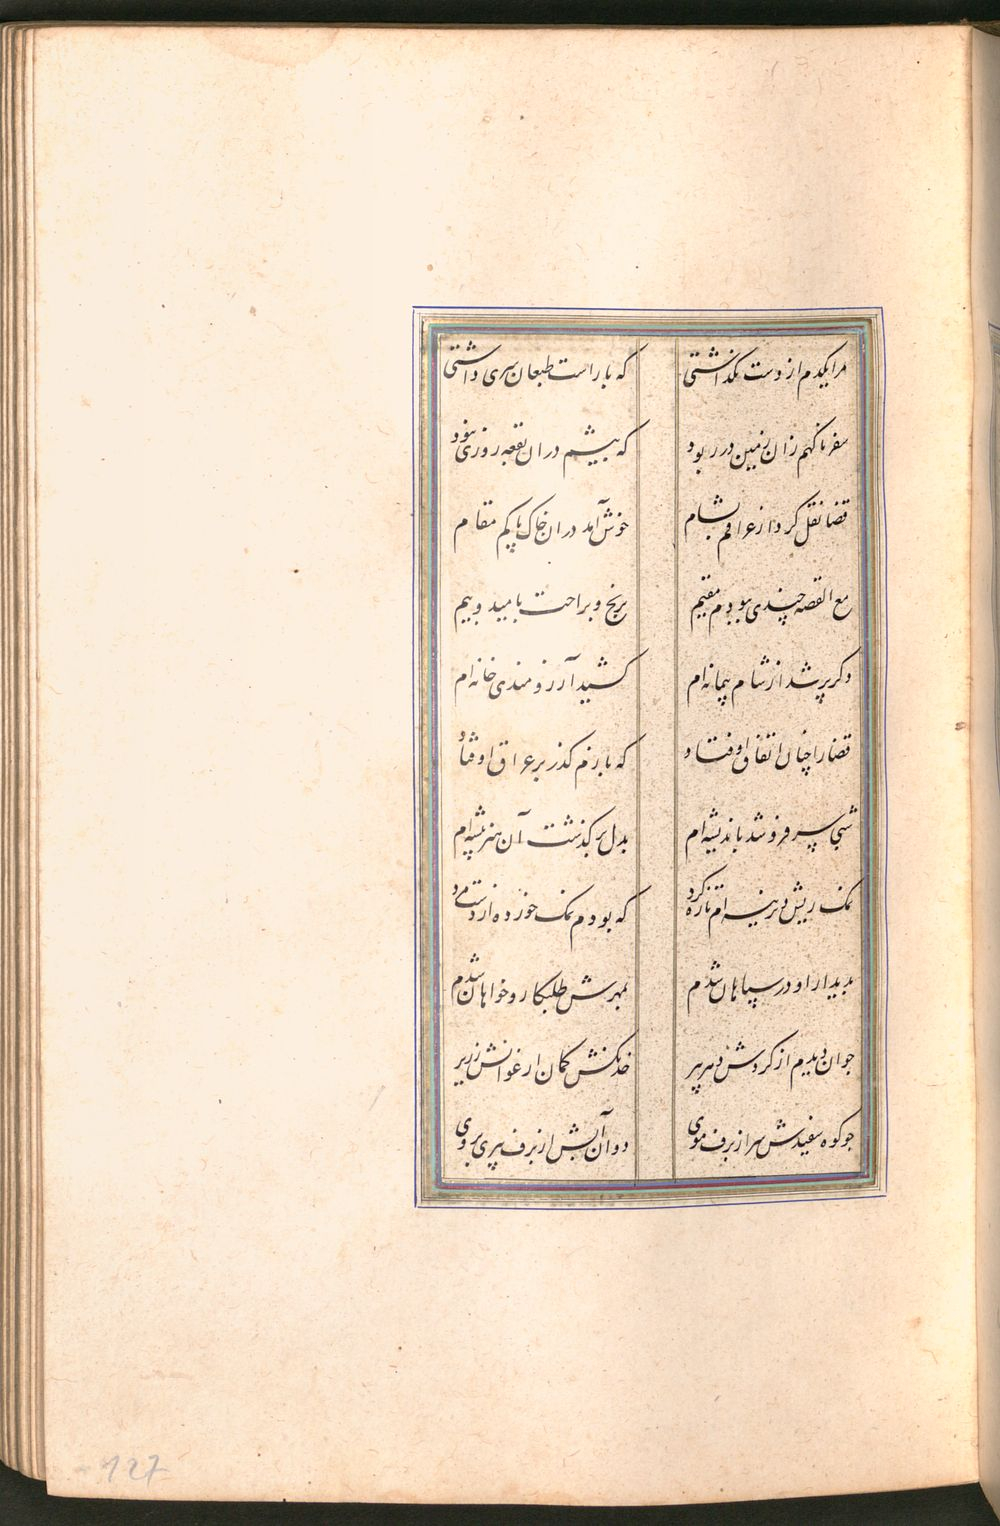 مرا یکدم از دست نگذاشتی که با راست طبعان سری داشتی
سفر ناگهم زان زمین در ربود که بیشم در ان بقعه روزی نبود
قضا نقل کرد از عراقم بشام خوش آمد در ان خاک پاکم مقام
مع القصه چندی ببودم مقیم برنج و براحت بامید و بیم
دکر پر شد از شام پیمانه ام کشید آرزومندی خانه ام
قضا را چنان اتفاق اوفتاد که بازم کذر بر عراق اوفتاد
شبی سر فرو شد باندیشه ام بدل بر کذشت آن هنر پیشه ام
نمک ریش دیرینه ام تازه کرد که بودم نمک خورده از دست مرد
بدیدار او در سپاهان شدم بمهرش طلبکار و خواهان شدم
جوان دیدم از کردش دهر پیر خدنکش کمان ارغوانش زریر
جو کوه سفیدش سر از برف موی دوان آبش از برف پیری بروی
127